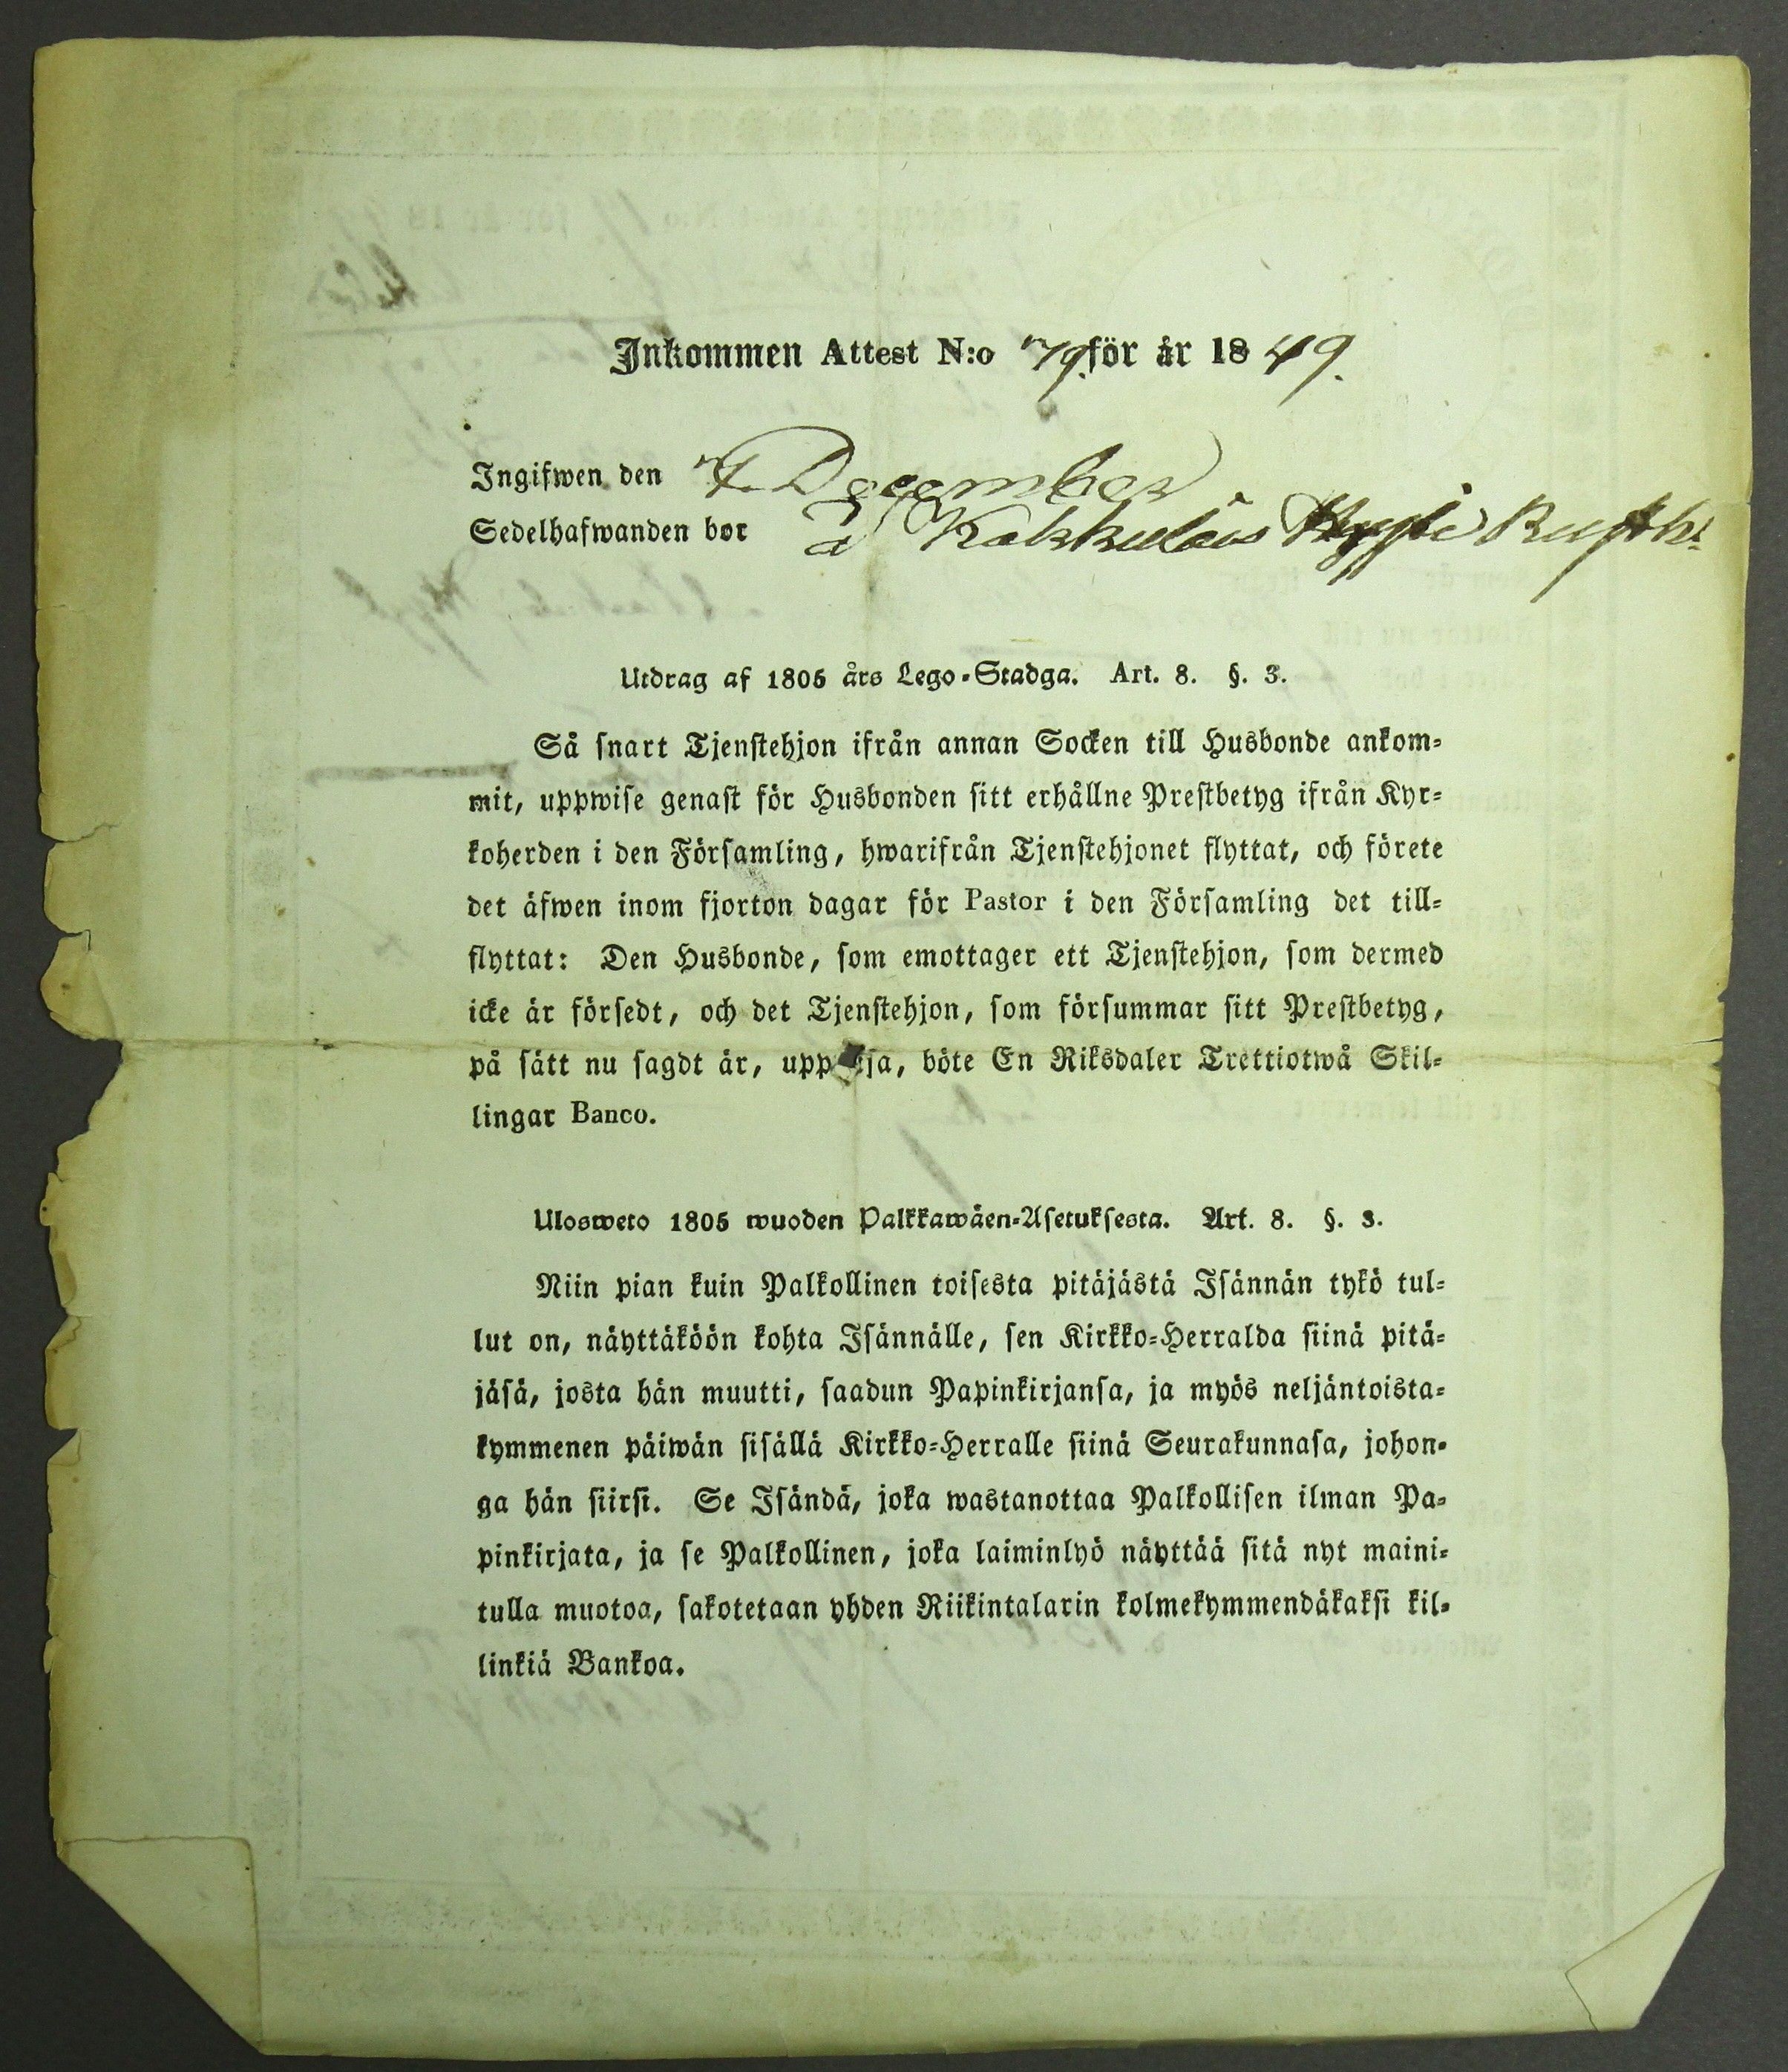 Inkommen Attest N:o 79. för år 1849.
Ingifwen den 7 December
Sedelhafwanden bor å Kakkulais
Utdrag af 1805 års Lego-Stadga. Art. 8. §. 3.
Så snart Tjenstehjon ifrån annan Socken till Husbonde ankom-
mit, uppwise genast för Husbonden sitt erhållne Prestbetyg ifrån Kyr-
koherden i den Församling, hwarifrån Tjenstehjonet flyttat, och förete
det äfwen inom fjorton dagar för Pastor i den Församling det till-
flyttat: Den Husbonde, som emottager ett Tjenstehjon, som dermed
icke är försedt, och det Tjenstehjon, som försummar sitt Prestbetyg,
på sätt nu sagdt är, böte En Riksdaler Trettiotwå Skil-
lingar Banco.
Ulosweto 1805 wuoden Palkkawäen-Asetuksesta. Art. 8. §. 3.
Niin pian kuin Palkollinen toisesta pitäjästä Isännän tykö tul-
lut on, näyttäköön kohta Isännälle, sen Kirkko-Herralda siinä pitä-
jäsä, josta hän muutti, saadun Papinkirjansa, ja myös neljäntoista-
kymmenen päiwän sisällä Kirkko-Herralle siinä Seurakunnasa, johon-
ga hän siirsi. Se Isändä, joka wastanottaa Palkollisen ilman Pa-
pinkirjata, ja se Palkollinen, joka laiminlyö näyttää sitä nyt maini-
tulla muotoa, sakotetaan yhden Riikintalarin kolmekymmendäkaksi kil-
linkiä Bankoa.